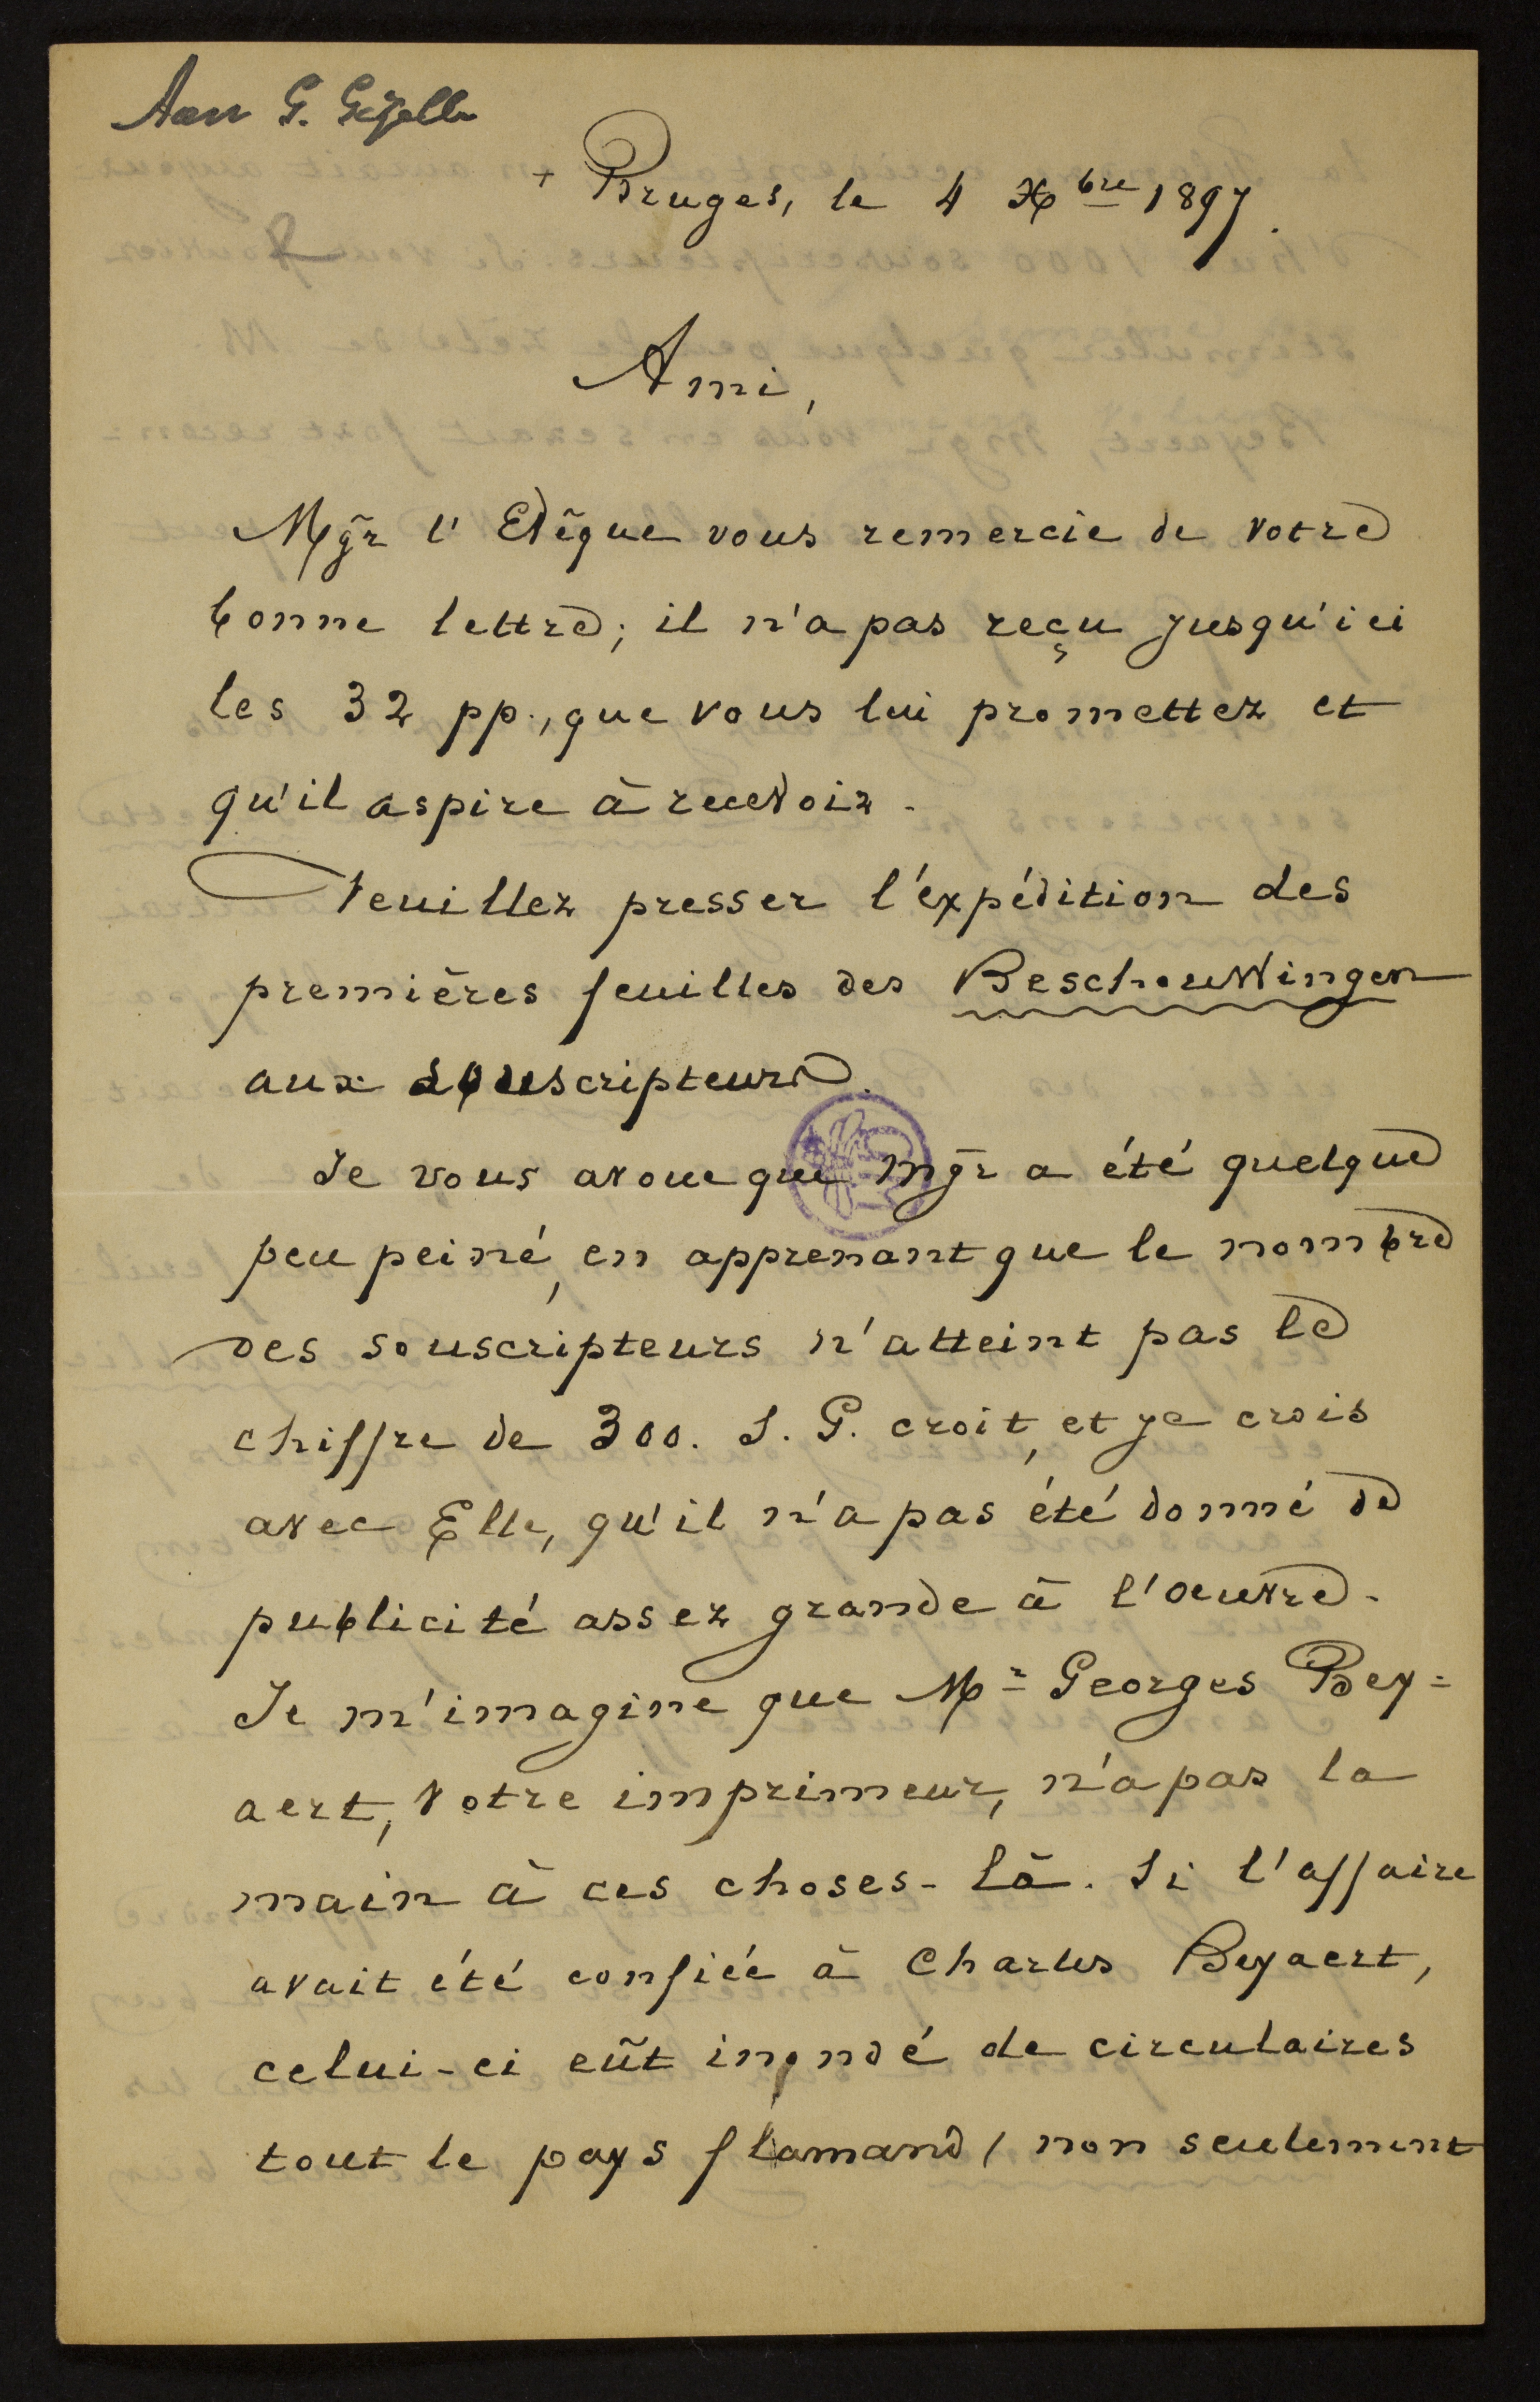 Aan G. Gezelle
+ Bruges, le 4 Xbre 1897.
Ami,
Mgr l'Evêque vous remercie de votre
bonne lettre; il n'a pas reçu jusqu'ici
les 32 pp., que vous lui promettez et
qu'il aspire à recevoir.
Veuillez presser l'expédition des
premières feuilles des Beschouwingen
aux souscripteurs.
Je vous avoue que Mgr a été quelque
peu peiné, en apprenant que le nombre
des souscripteurs n'atteint pas le
chiffre de 300. S. G. croit, et je crois
avec Elle, qu'il n'a pas été donné de
publicité assez grande à l'oeuvre.
Je m'imagine que Mr Georges Bey=
aert, votre imprimeur, n'a pas la
main à ces choses-là. Si l'affaire
avait été confiée à Charles Beyaert,
celui-ci eût inondé de circulaires
tout le pays flamand, non seulement